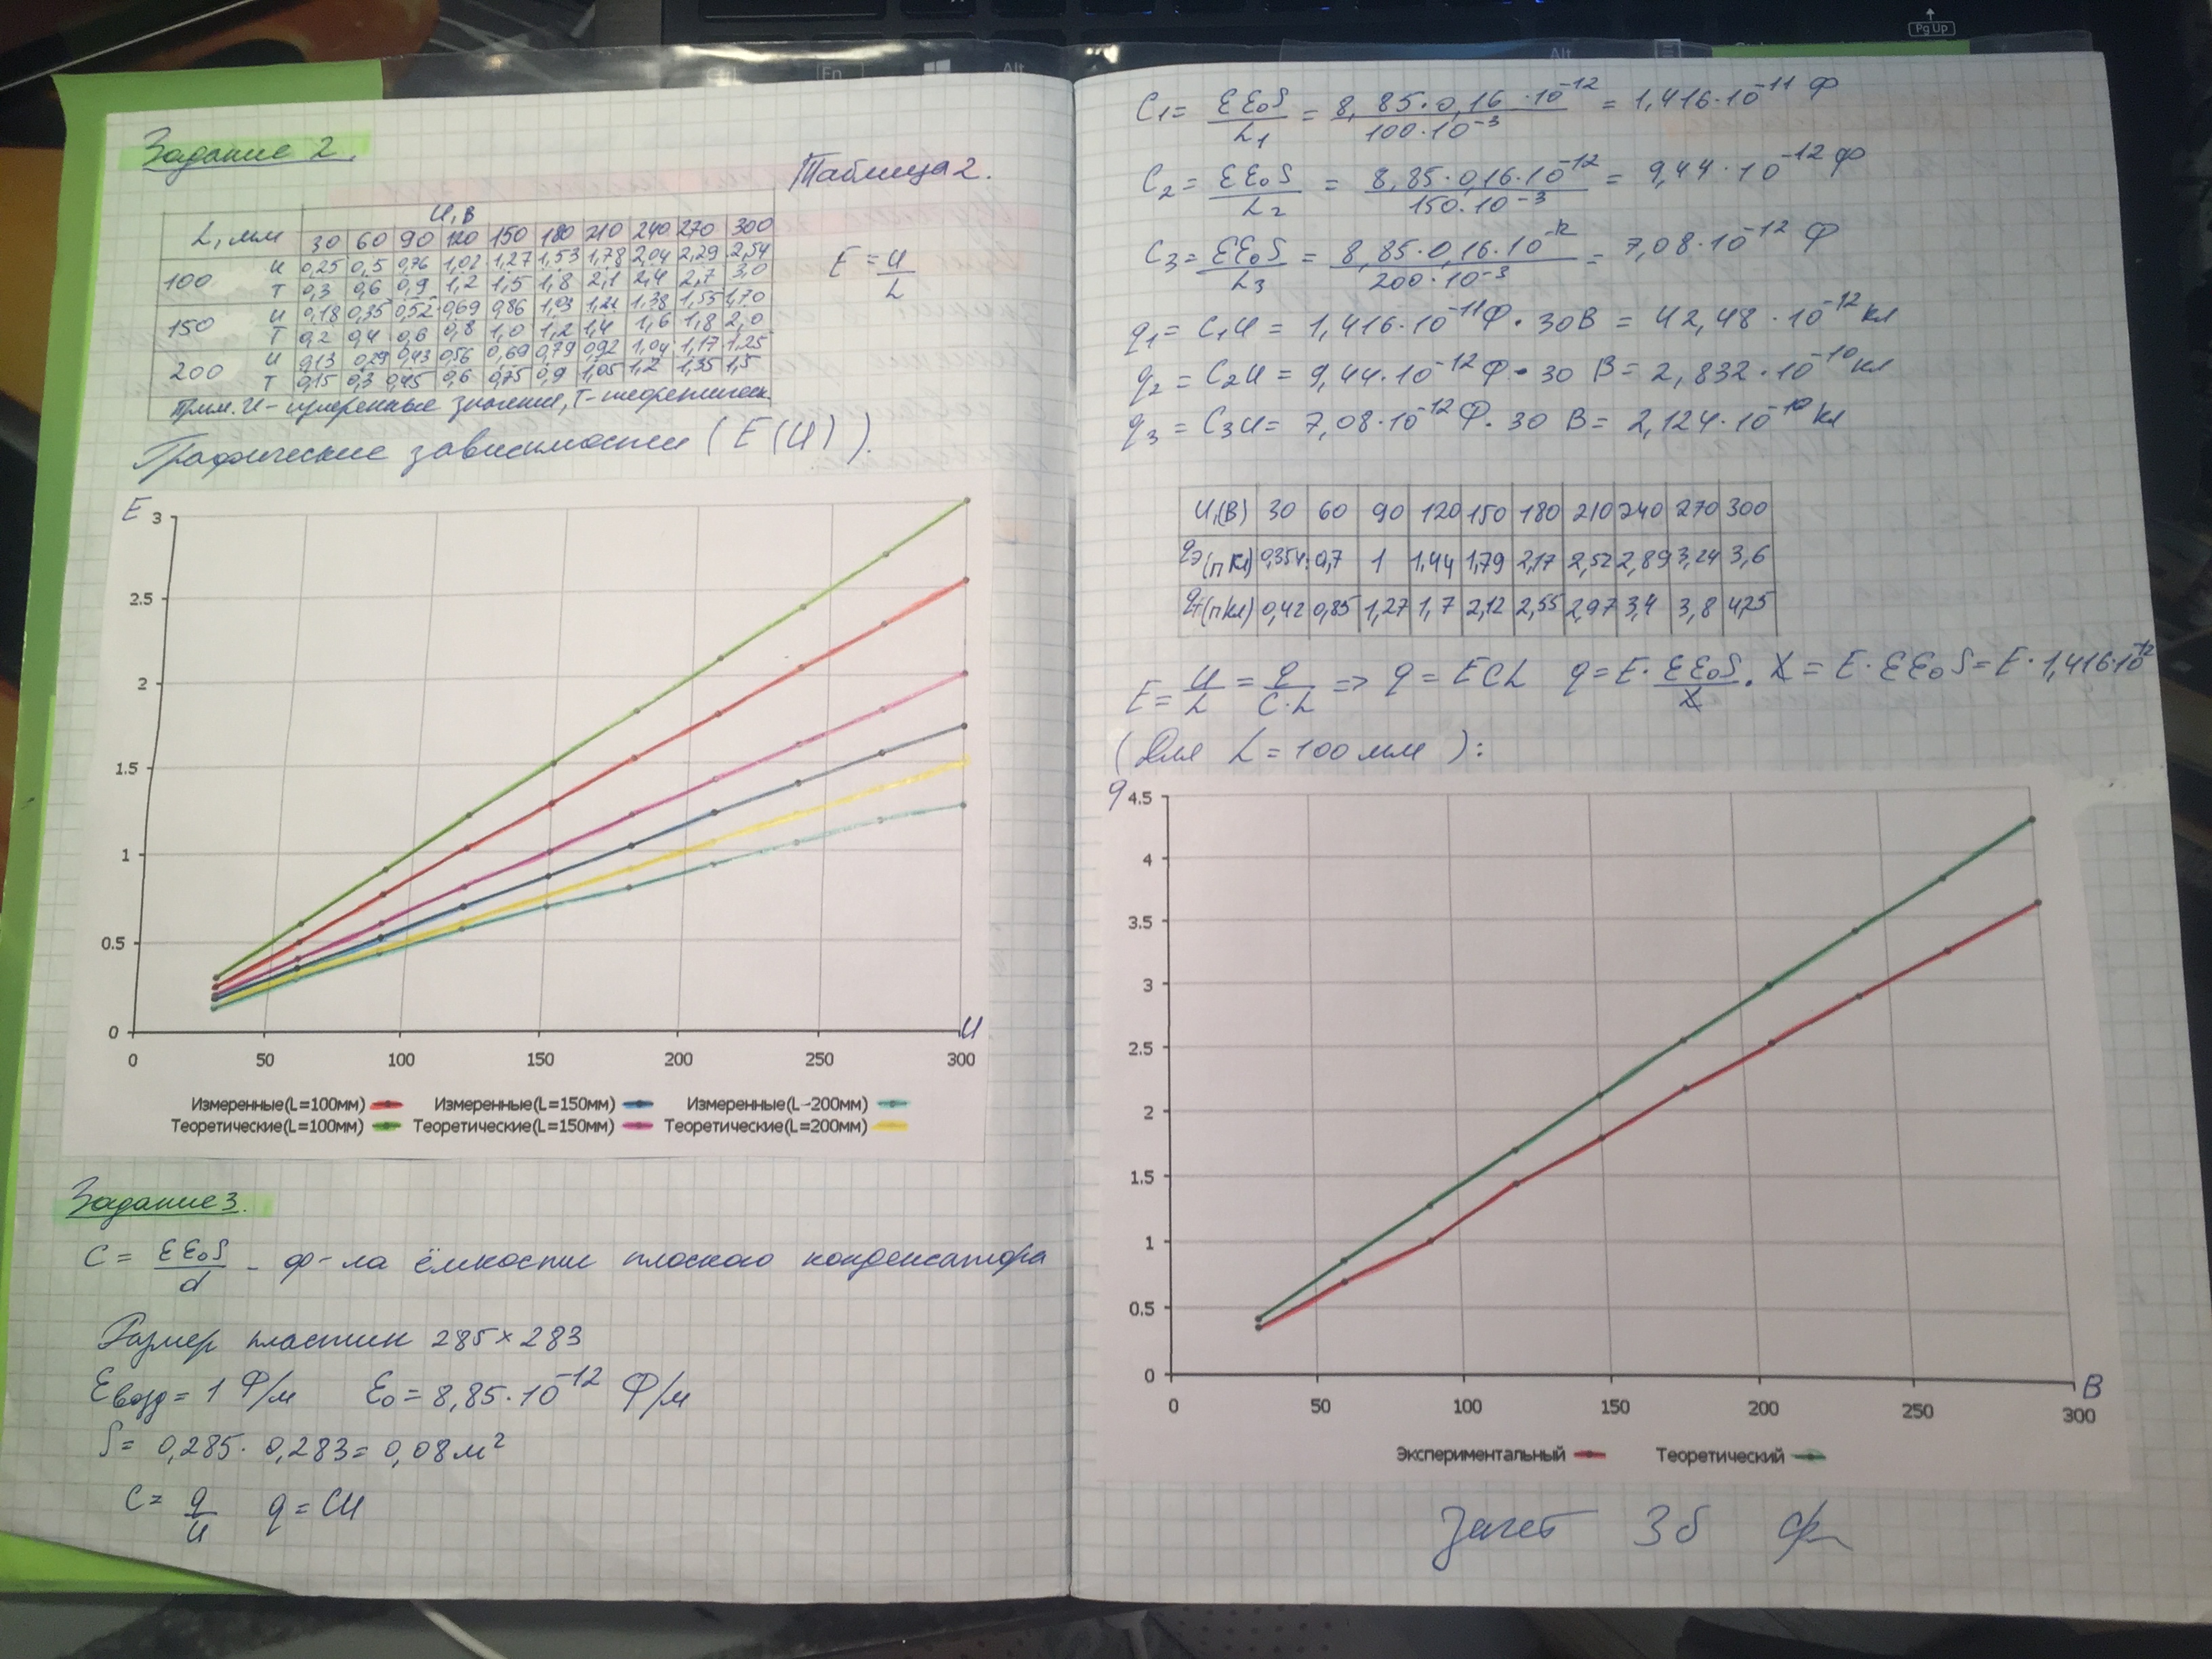 Задание 2.
Таблица 2.
L, мм U, В
30 60 90 120 150 180 210 240 270 300
100 И 0,25 0,5 0,76 1,02 1,27 1,53 1,78 2,04 2,29 2,54
Т 0,3 0,6 0,9 1,2 1,5 1,8 2,1 2,4 2,7 3,0
150 И 0,18 0,35 0,52 0,69 0,86 1,03 1,21 1,38 1,55 1,70
Т 0,2 0,4 0,6 0,8 1,0 1,2 1,4 1,6 1,8 2,0
200 И 0,13 0,29 0,43 0,56 0,69 0,79 0,92 1,04 1,17 1,25
Т 0,15 0,3 0,45 0,6 0,75 0,9 1,05 1,2 1,35 1,5
Прим. И - измеренные значения, Т - теоретическ.
E = U/L
Графические зависимости (E(U)).
E
3
2.5
2
1.5
1
0.5
0
0 50 100 150 200 250 300
U
Измеренные(L=100мм) Измеренные(L=150мм) Измеренные(L-200мм)
Теоретические(L=100мм) Теоретические(L=150мм) Теоретические(L=200мм)
Задание 3.
C = εε₀S/d - ф-ла ёмкости плоского конденсатора
Размер пластин 285×283
εвозд = 1 Ф/м ε₀ = 8,85·10⁻¹² Ф/м
S = 0,285·0,283 = 0,08 м²
C = q/U q = CU
C₁ = εε₀S/L₁ = 8,85·0,16·10⁻¹²/100·10⁻³ = 1,416·10⁻¹¹ Ф
C₂ = εε₀S/L₂ = 8,85·0,16·10⁻¹²/150·10⁻³ = 9,44·10⁻¹² Ф
C₃ = εε₀S/L₃ = 8,85·0,16·10⁻¹²/200·10⁻³ = 7,08·10⁻¹² Ф
q₁ = C₁U = 1,416·10⁻¹¹Ф·30В = 42,48·10⁻¹² Кл
q₂ = C₂U = 9,44·10⁻¹²Ф·30 В = 2,832·10⁻¹⁰ Кл
q₃ = C₃U = 7,08·10⁻¹²Ф·30 В = 2,124·10⁻¹⁰ Кл
U,(В) 30 60 90 120 150 180 210 240 270 300
qэ(пКл) 0,354 0,7 1 1,44 1,79 2,17 2,52 2,89 3,24 3,6
qт(пКл) 0,42 0,85 1,27 1,7 2,12 2,55 2,97 3,4 3,8 4,25
E = U/L = q/C·L => q = ECL q = E·εε₀S/L·L = E·εε₀S = E·1,416·10⁻¹²
(Для L = 100 мм):
q
4.5
4
3.5
3
2.5
2
1.5
1
0.5
0
0 50 100 150 200 250 300
В
Экспериментальный Теоретический
Зачет 3б